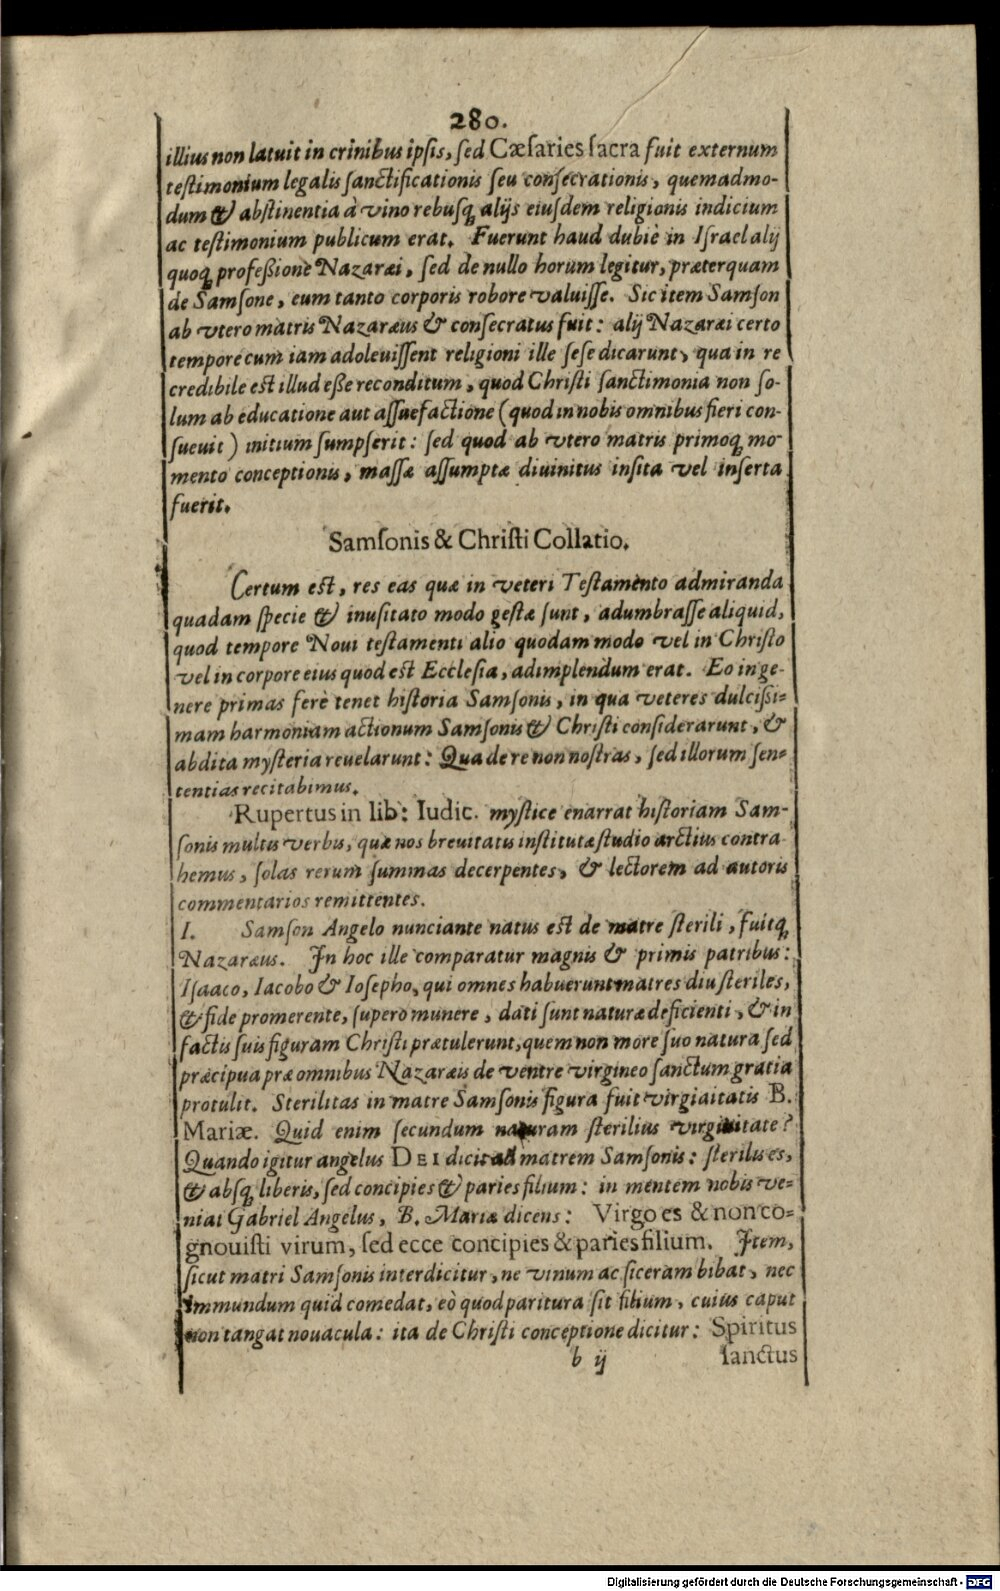 280.
illius non latuit in crinibus ipsis, ſed Cæſaries ſacra fuit externum
teſtimonium legalis ſanctificationis ſeu conſecrationis, quemadmo-
dum & abſtinentia à vino rebusq́; alijs eiuſdem religionis indicium
ac teſtimonium publicum erat. Fuerunt haud dubiè in Iſrael alij
quoq; profeßione Nazaræi, ſed de nullo horum legitur, præterquam
de Samſone, eum tanto corporis robore valuiſſe. Sic item Samſon
ab vtero matris Nazaræus & conſecratus fuit: alij Nazaræi certo
tempore cum iam adoleuiſſent religioni ille ſeſe dicarunt, qua in re
credibile eſt illud eße reconditum, quod Chriſti ſanctimonia non ſo-
lum ab educatione aut aſſuefactione (quod in nobis omnibus fieri con-
ſueuit) initium ſumpſerit: ſed quod ab vtero matris primoq́; mo-
mento conceptionis, maſſæ aſſumptæ diuinitus inſita vel inſerta
fuerit.
Samſonis & Chriſti Collatio.
Certum eſt, res eas quæ in veteri Teſtamento admiranda
quadam ſpecie & inuſitato modo geſtæ ſunt, adumbraſſe aliquid,
quod tempore Noui teſtamenti alio quodam modo vel in Chriſto
vel in corpore eius quod eſt Eccleſia, adimplendum erat. Eo in ge-
nere primas ferè tenet hiſtoria Samſonis, in qua veteres dulcißi-
mam harmoniam actionum Samſonis & Chriſti conſiderarunt, &
abdita myſteria reuelarunt: Qua de re non noſtras, ſed illorum ſen-
tentias recitabimus.
Rupertus in lib: Iudic. myſtice enarrat hiſtoriam Sam-
ſonis multis verbis, quæ nos breuitatis inſtitutæ ſtudio arctius contra
hemus, ſolas rerum ſummas decerpentes, & lectorem ad autoris
commentarios remittentes.
I. Samſon Angelo nunciante natus eſt de matre ſterili, fuitq́;
Nazaræus. In hoc ille comparatur magnis & primis patribus:
Iſaaco, Iacobo & Ioſepho, qui omnes habuerunt matres diu ſteriles,
& fide promerente, ſupero munere, dati ſunt naturæ deficienti, & in
factis ſuis figuram Chriſti prætulerunt, quem non more ſuo natura ſed
præcipua præ omnibus Nazaræis de ventre virgineo ſanctum gratia
protulit. Sterilitas in matre Samſonis figura fuit virgiaitatis B.
Mariæ. Quid enim ſecundum naturam ſterilius virginitate?
Quando igitur angelus DEI dicit ad matrem Samſonis: ſterilis es,
& absq; liberis, ſed concipies & paries filium: in mentem nobis ve-
niat Gabriel Angelus, B. Mariæ dicens: Virgo es & non co-
gnouiſti virum, ſed ecce concipies & paries filium. Item,
ſicut matri Samſonis interdicitur, ne vinum ac ſiceram bibat, nec
immundum quid comedat, eò quod paritura ſit filium, cuius caput
non tangat nouacula: ita de Chriſti conceptione dicitur: Spiritus
b ij ſanctus
Digitalisierung gefördert durch die Deutsche Forschungsgemeinschaft - DFG